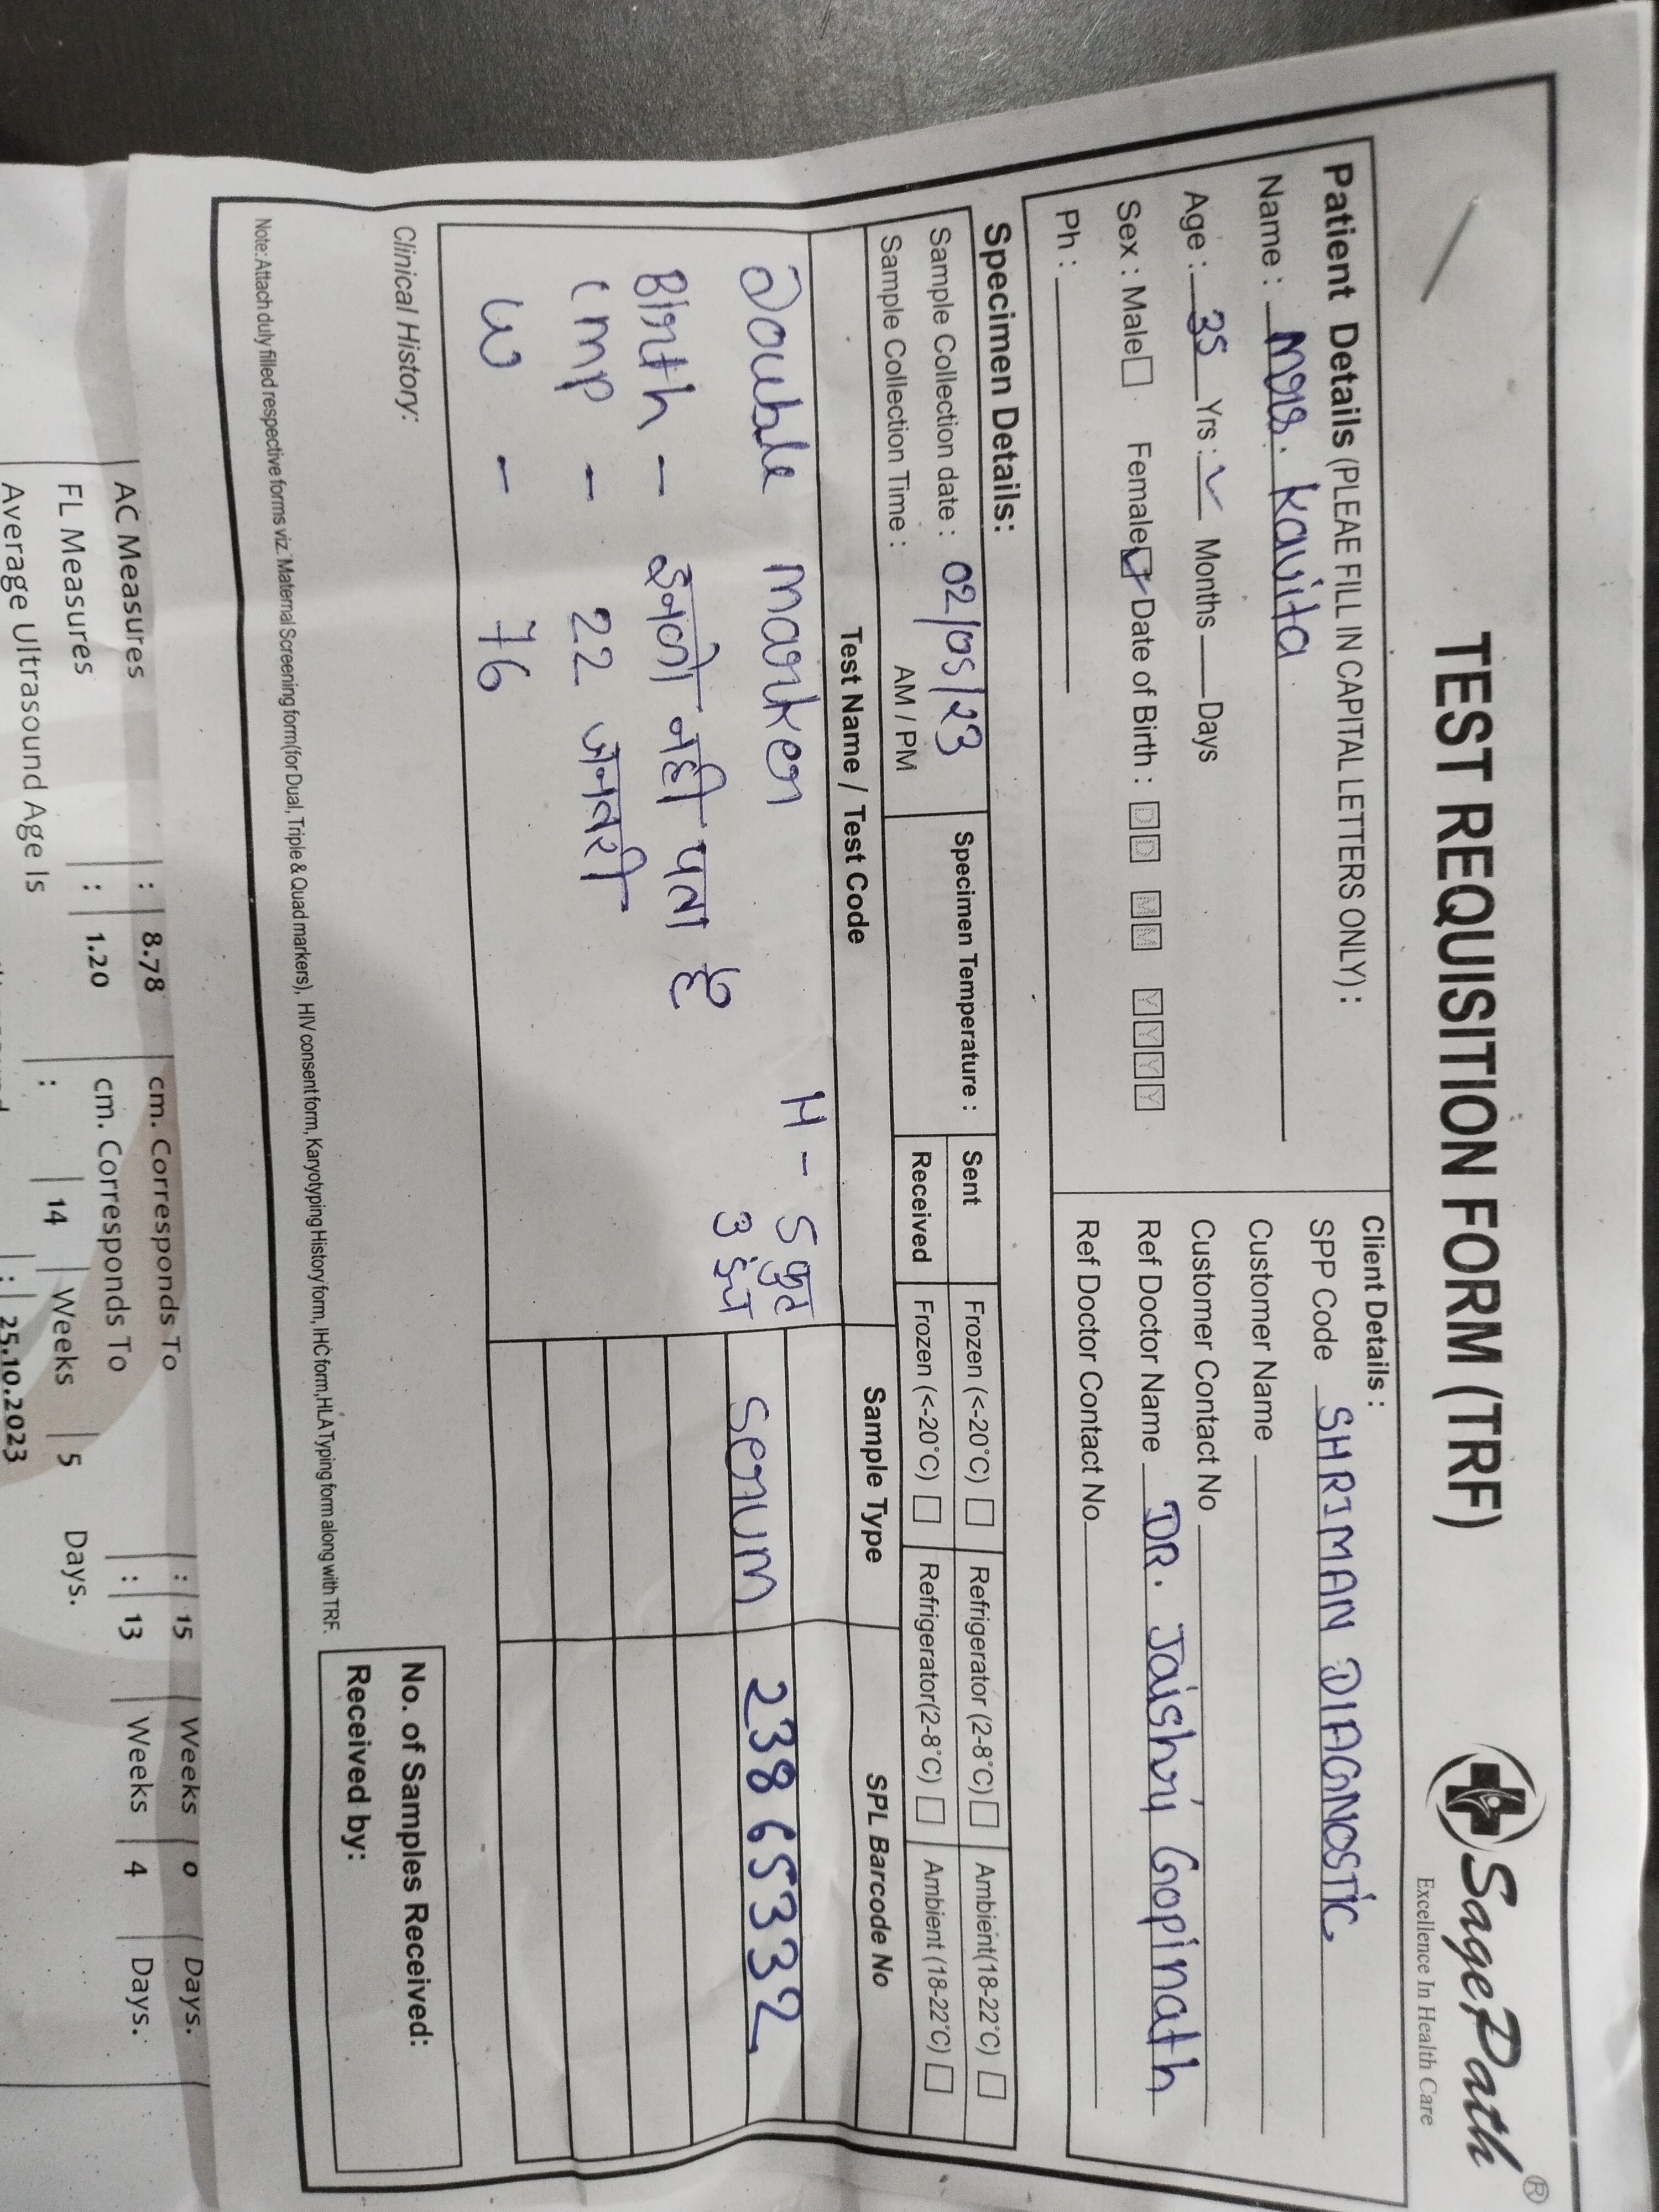 TEST REQUISITION FORM (TRF)
SagePath®
Excellence In Health Care
Patient Details (PLEAE FILL IN CAPITAL LETTERS ONLY) :
Name : Mrs. Kavita
Age : 35 Yrs : Months Days
Sex : Male Female Date of Birth : D D M M Y Y Y Y
Ph :
Client Details :
SPP Code SHRIMAN DIAGNOSTIC
Customer Name
Customer Contact No
Ref Doctor Name DR. Jaishri Gopinath
Ref Doctor Contact No
Specimen Details:
Sample Collection date : 02/05/23
Sample Collection Time : AM / PM
Specimen Temperature :
Sent Frozen (<-20°C) Refrigerator (2-8°C) Ambient(18-22°C)
Received Frozen (<-20°C) Refrigerator(2-8°C) Ambient (18-22°C)
Test Name / Test Code Sample Type SPL Barcode No
Double marker H - 5 फुट
3 इंच
Serum 23865332
Birth - इनको नही पता है
LMP - 22 जनवरी
W - 76
Clinical History:
No. of Samples Received:
Received by:
Note: Attach duly filled respective forms viz. Maternal Screening form(for Dual, Triple & Quad markers), HIV consent form, Karyotyping History form, IHC form,HLA Typing form along with TRF.
AC Measures : 8.78 cm. Corresponds To : 15 Weeks 0 Days.
FL Measures : 1.20 cm. Corresponds To : 13 Weeks 4 Days.
Average Ultrasound Age Is : 14 Weeks 5 Days.
: 25.10.2023